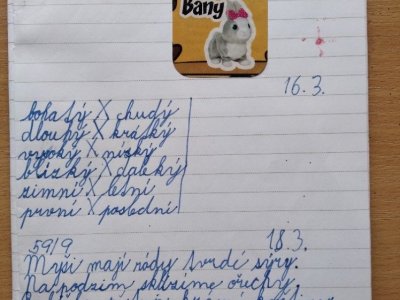 Bany
16.3.
bohatý X chudý
dlouhý X krátký
vysoký X nízký
blízký X daleký
zimní X letní
první X poslední
59/9 18.3.
Myši mají rády tvrdí sýry.
Na podzim sklízíme ořechy.